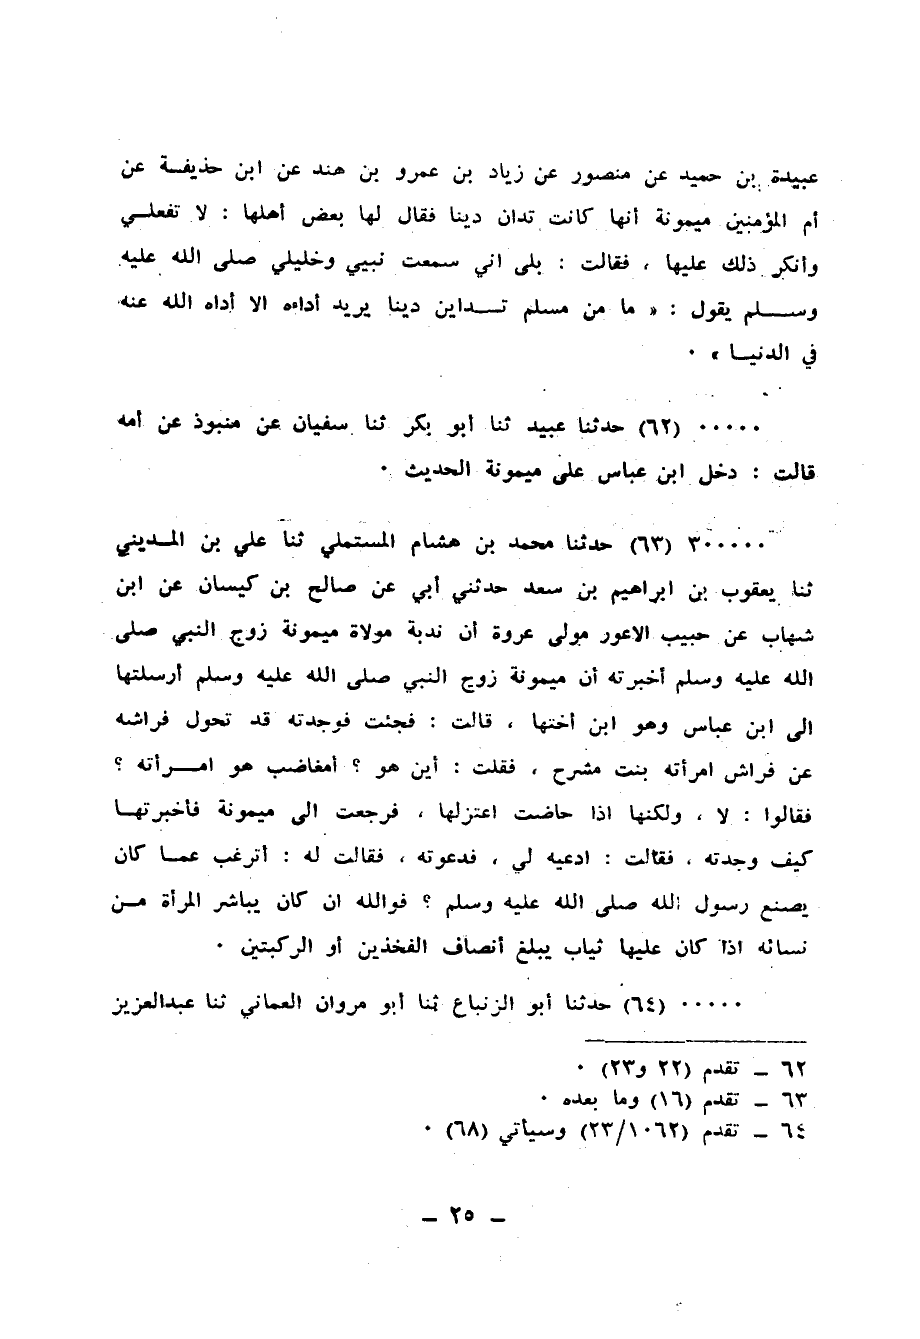 عبيدة بن حميد عن منصور عن زياد بن عمرو بن هند عن ابن حذيفـة عن
أم المؤمنين ميمونة أنها كانت تدان دينا فقال لها بعض أهلها : لا تفعلـي
وأنكر ذلك عليها ، فقالت : بلى اني سمعت نبيي وخليلي صلى الله عليه
وســلم يقول : « ما من مسلم تــداين دينا يريد أداءه الا أداه الله عنه
في الدنيـا » ٠
٠٠٠٠٠ (٦٢) حدثنا عبيد ثنا أبو بكر ثنا سفيان عن منبوذ عن أمه
قالت : دخل ابن عباس على ميمونة الحديث ٠
٣٠٠٠٠٠ (٦٣) حدثنا محمد بن هشام المستملي ثنا علي بن المـديني
ثنا يعقوب بن ابراهيم بن سعد حدثني أبي عن صالح بن كيسان عن ابن
شهاب عن حبيب الاعور مولى عروة أن ندبة مولاة ميمونة زوج النبي صلى
الله عليه وسلم أخبرته أن ميمونة زوج النبي صلى الله عليه وسلم أرسلتها
الى ابن عباس وهو ابن أختها ، قالت : فجئت فوجدته قد تحول فراشه
عن فراش امرأته بنت مشرح ، فقلت : أين هو ؟ أمغاضب هو امــرأته ؟
فقالوا : لا ، ولكنها اذا حاضت اعتزلها ، فرجعت الى ميمونة فأخبرتهـا
كيف وجدته ، فقالت : ادعيه لي ، فدعوته ، فقالت له : أترغب عمـا كان
يصنع رسول الله صلى الله عليه وسلم ؟ فوالله ان كان يباشر المرأة مـن
نسائه اذا كان عليها ثياب يبلغ أنصاف الفخذين أو الركبتين ٠
٠٠٠٠٠ (٦٤) حدثنا أبو الزنباع ثنا أبو مروان العماني ثنا عبدالعزيز
٦٢ ـ تقدم (٢٢ و٢٣) ٠
٦٣ ـ تقدم (١٦) وما بعده ٠
٦٤ ـ تقدم (٢٣/١٠٦٢) وسيأتي (٦٨) ٠
ـ ٢٥ ـ